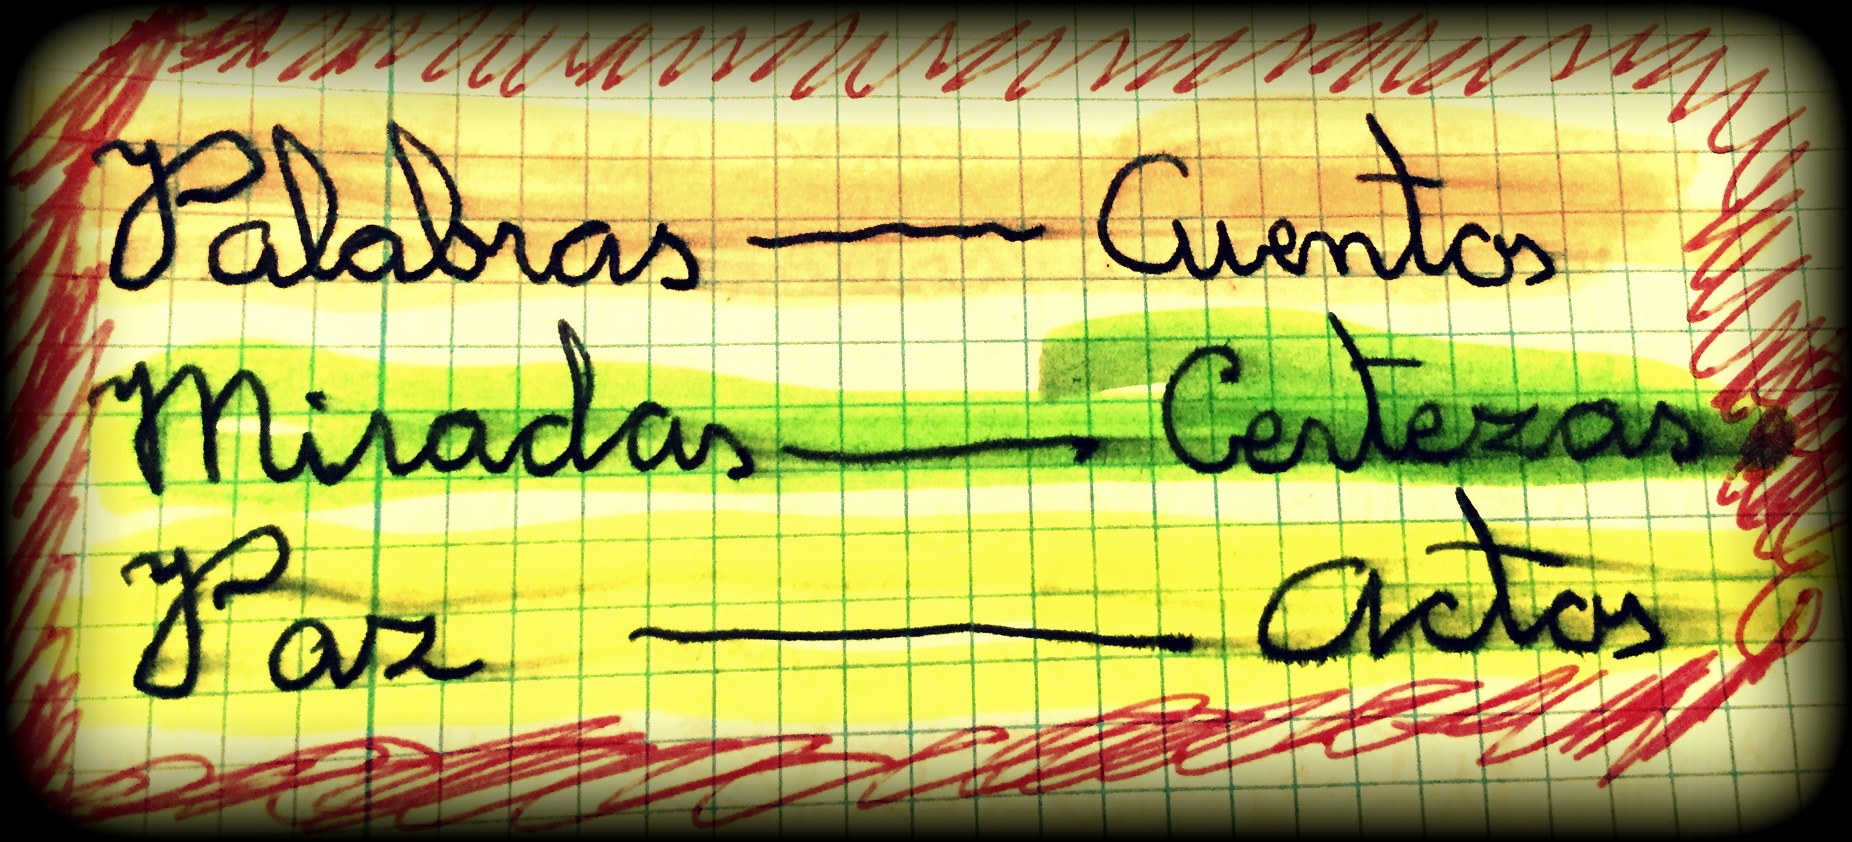 Palabras — Cuentos
Miradas — Certezas
Paz — Actos